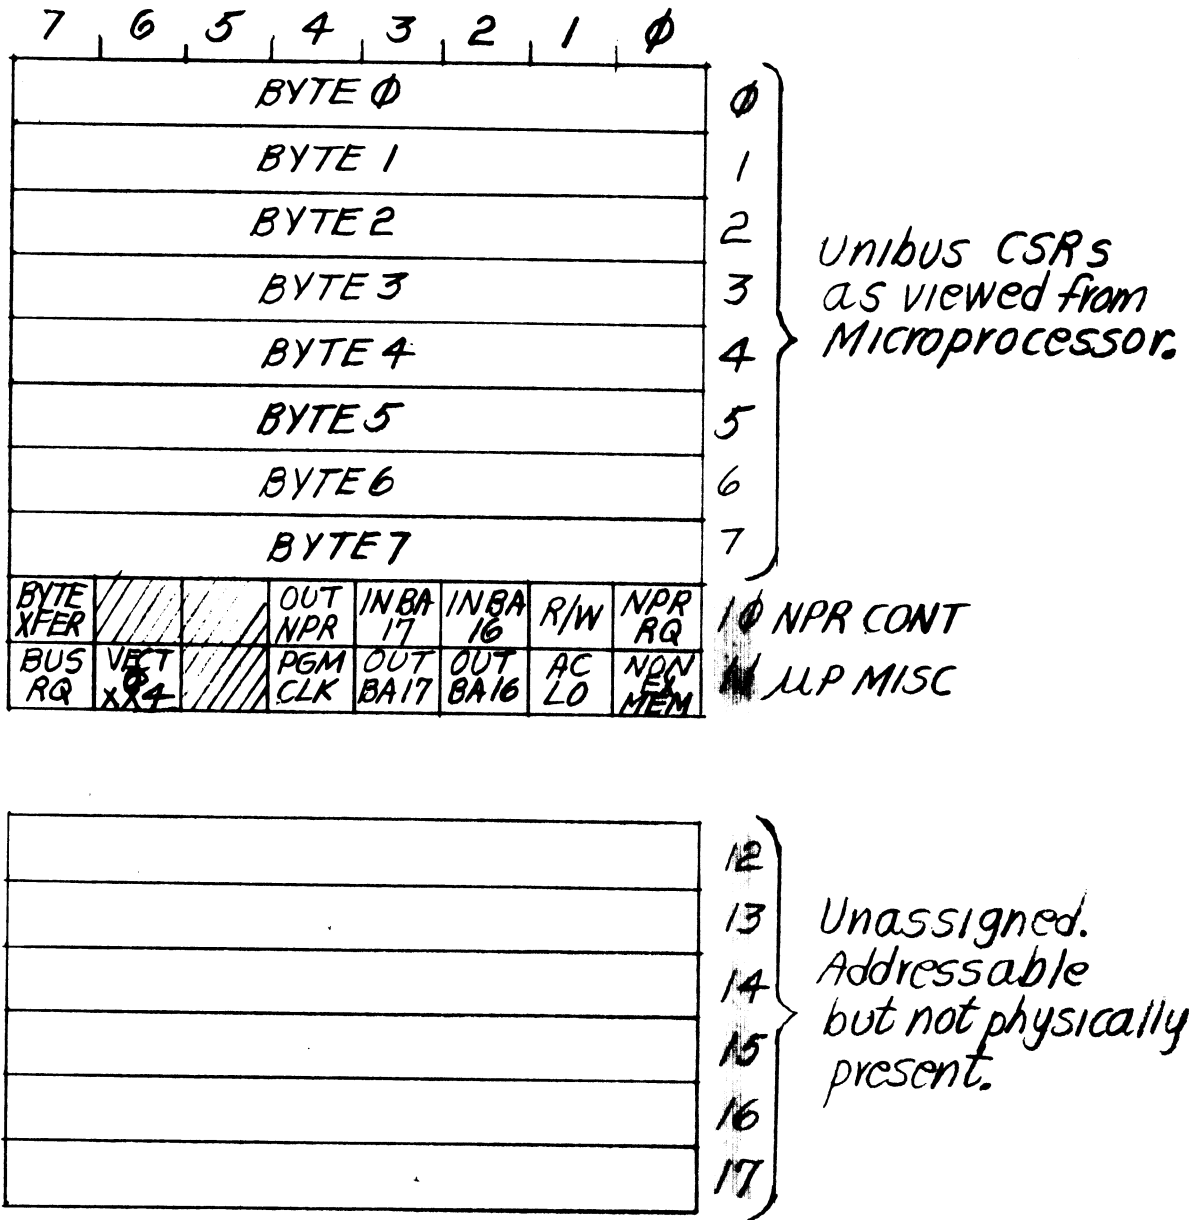 7 6 5 4 3 2 1 Ø
BYTE Ø Ø
BYTE 1 1
BYTE 2 2
BYTE 3 3
BYTE 4 4
BYTE 5 5
BYTE 6 6
BYTE 7 7
Unibus CSRs
as viewed from
Microprocessor.
BYTE XFER OUT NPR IN BA 17 IN BA 16 R/W NPR RQ 1Ø NPR CONT
BUS RQ VECT XX4 PGM CLK OUT BA17 OUT BA16 AC LO NON EX MEM µP MISC
12
13
14
15
16
17
Unassigned.
Addressable
but not physically
present.